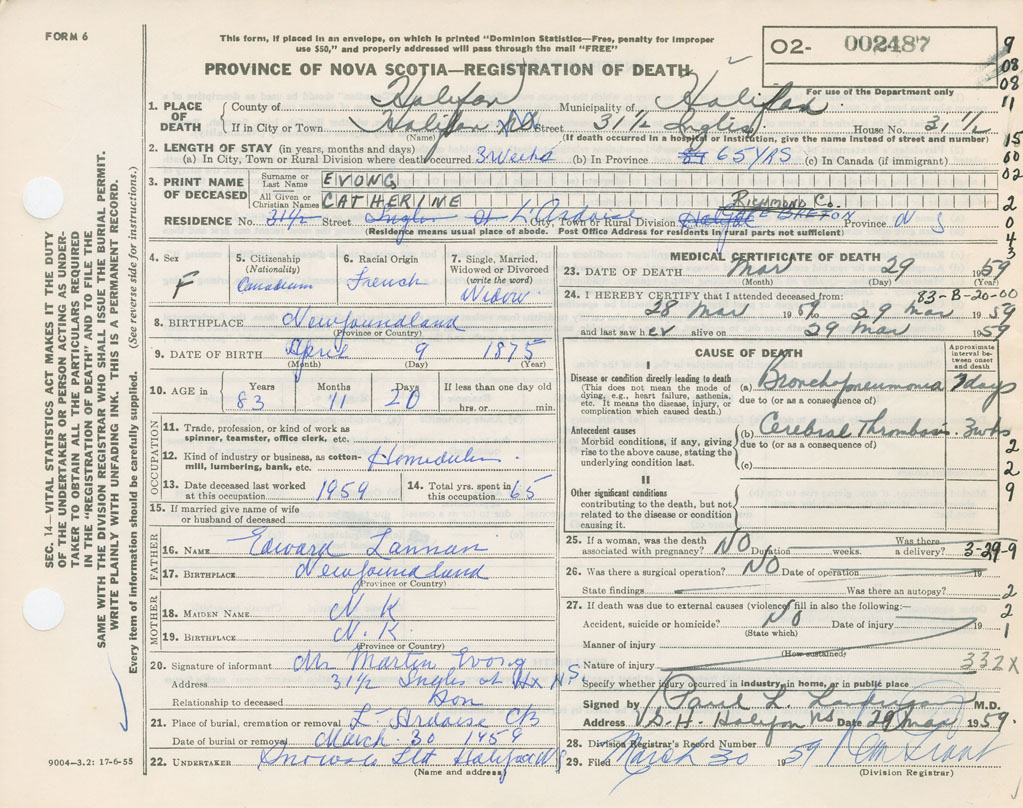 FORM 6
This form, if placed in an envelope, on which is printed "Dominion Statistics—Free, penalty for improper
use $50," and properly addressed will pass through the mail "FREE"
O2- 002487
For use of the Department only
PROVINCE OF NOVA SCOTIA—REGISTRATION OF DEATH
1. PLACE OF DEATH
County of Halifax Municipality of Halifax
If in City or Town Halifax Street 31 1/2 Inglis House No. 31 1/2
(Name) (If death occurred in a hospital or institution, give the name instead of street and number)
2. LENGTH OF STAY (in years, months and days)
(a) In City, Town or Rural Division where death occurred 3 weeks (b) In Province 65 YRS (c) In Canada (if immigrant)
3. PRINT NAME OF DECEASED
Surname or Last Name EVONG
All Given or Christian Names CATHERINE
RICHMOND Co.
RESIDENCE No. 31 1/2 Street Inglis St L'Ardoise City, Town or Rural Division Halifax CAPE BRETON Province N S
(Residence means usual place of abode. Post Office Address for residents in rural parts not sufficient)
4. Sex F
5. Citizenship (Nationality) Canadian
6. Racial Origin French
7. Single, Married, Widowed or Divorced (write the word) Widow
8. BIRTHPLACE Newfoundland
(Province or Country)
9. DATE OF BIRTH April 9 1875
(Month) (Day) (Year)
10. AGE in Years 83 Months 11 Days 20 If less than one day old hrs. or min.
OCCUPATION
11. Trade, profession, or kind of work as spinner, teamster, office clerk, etc.
12. Kind of industry or business, as cotton-mill, lumbering, bank, etc. Homeduties
13. Date deceased last worked at this occupation 1959
14. Total yrs. spent in this occupation 65
15. If married give name of wife or husband of deceased
FATHER
16. NAME Edward Lannan
17. BIRTHPLACE Newfoundland
(Province or Country)
MOTHER
18. MAIDEN NAME N K
19. BIRTHPLACE N. K.
(Province or Country)
20. Signature of informant Mr Martin Evong
Address 31 1/2 Inglis st Hx N.S.
Relationship to deceased Son
21. Place of burial, cremation or removal L'Ardoise CB
Date of burial or removal March 30 1959
22. UNDERTAKER Snows Ltd Halifax N
(Name and address)
MEDICAL CERTIFICATE OF DEATH
23. DATE OF DEATH Mar 29 1959
(Month) (Day) (Year)
83-B-20-00
24. I HEREBY CERTIFY that I attended deceased from:
28 Mar 1959 to 29 Mar 1959
and last saw her alive on 29 Mar 1959
CAUSE OF DEATH
Approximate interval between onset and death
I
Disease or condition directly leading to death
(This does not mean the mode of dying, e.g., heart failure, asthenia, etc. It means the disease, injury, or complication which caused death.)
(a) Bronchopneumonia 7 days
due to (or as a consequence of)
Antecedent causes
Morbid conditions, if any, giving rise to the above cause, stating the underlying condition last.
(b) Cerebral Thrombosis 3 wks
due to (or as a consequence of)
(c)
II
Other significant conditions
contributing to the death, but not related to the disease or condition causing it.
25. If a woman, was the death associated with pregnancy? NO Duration weeks. Was there a delivery? 3-29-9
26. Was there a surgical operation? NO Date of operation 19
State findings Was there an autopsy? 2
27. If death was due to external causes (violence) fill in also the following:—
Accident, suicide or homicide? No Date of injury 19
(State which)
Manner of injury
(How sustained)
Nature of injury 332X
Specify whether injury occurred in industry, in home, or in public place
Signed by Paul L. M.D.
Address V.G.H. Halifax NS Date 29 Mar 1959.
28. Division Registrar's Record Number
29. Filed March 30 1959
(Division Registrar)
9
08
08
11
15
00
02
2
0
4
3
2
2
9
2
1
SEC. 14—VITAL STATISTICS ACT MAKES IT THE DUTY
OF THE UNDERTAKER OR PERSON ACTING AS UNDER-
TAKER TO OBTAIN ALL THE PARTICULARS REQUIRED
IN THE "REGISTRATION OF DEATH" AND TO FILE THE
SAME WITH THE DIVISION REGISTRAR WHO SHALL ISSUE THE BURIAL PERMIT.
WRITE PLAINLY WITH UNFADING INK. THIS IS A PERMANENT RECORD.
Every item of information should be carefully supplied. (See reverse side for instructions.)
9004-3.2: 17-6-55